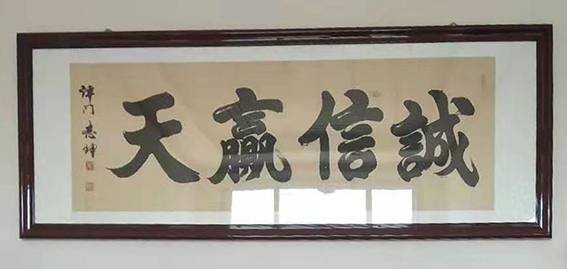 誠信贏天
津门志坤